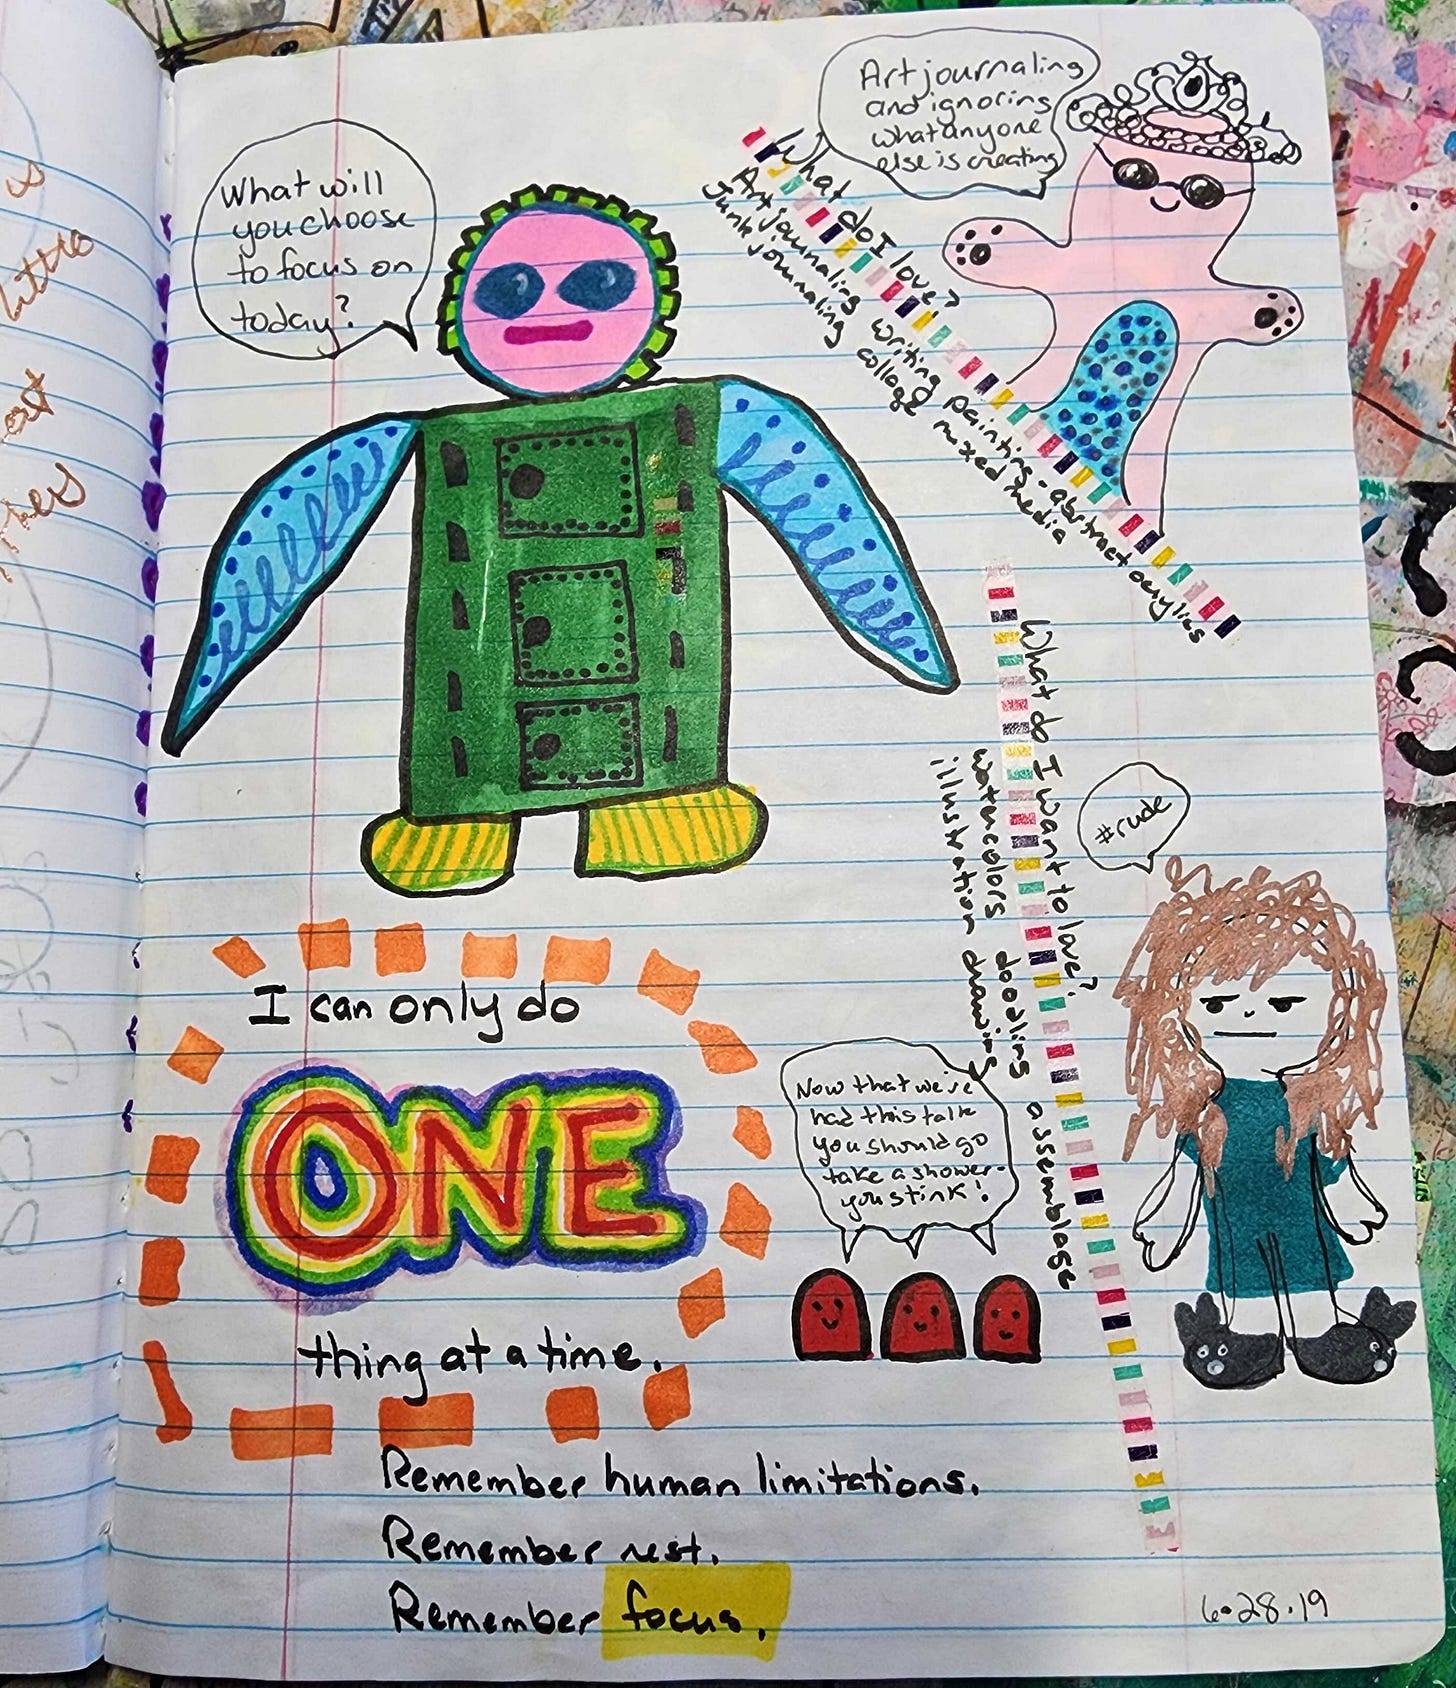 What will
you choose
to focus on
today?
Art journaling
and ignoring
what anyone
else is creating
What do I love?
Art journaling writing painting - abstract acrylics
Junk journaling collage mixed media
What do I want to love?
watercolors doodling assemblage
illustration drawing
#rude
I can only do
ONE
thing at a time.
Now that we've
had this talk
you should go
take a shower-
you stink!
Remember human limitations.
Remember rest.
Remember focus.
6.28.19